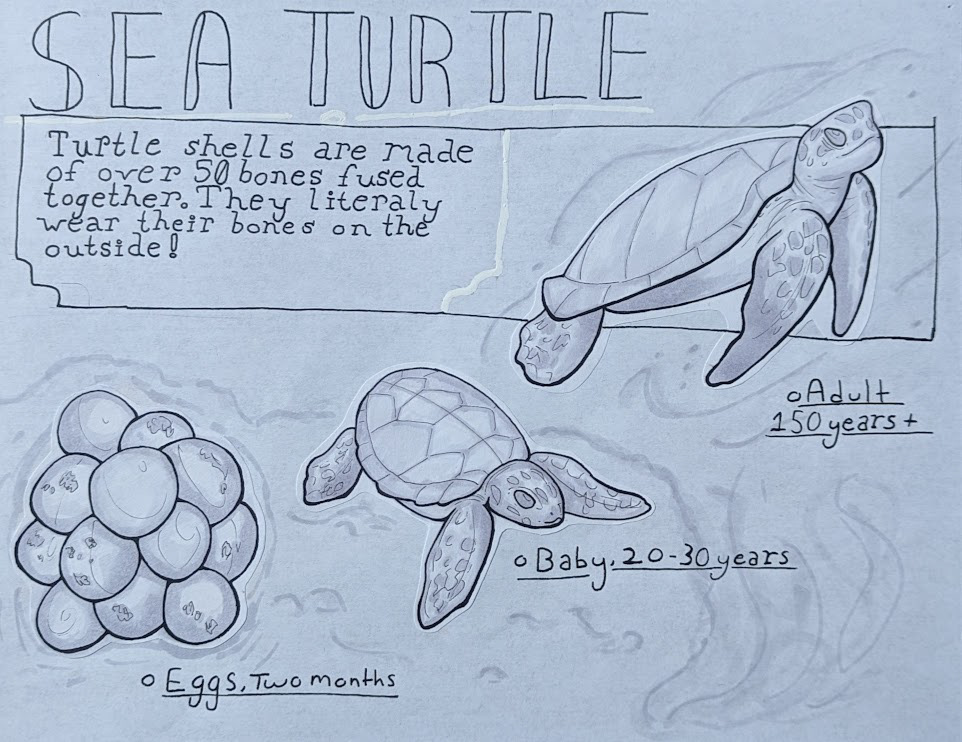 SEA TURTLE
Turtle shells are made
of over 50 bones fused
together. They literaly
wear their bones on the
outside!
Adult
150 years +
Baby, 20-30 years
Eggs, Two months